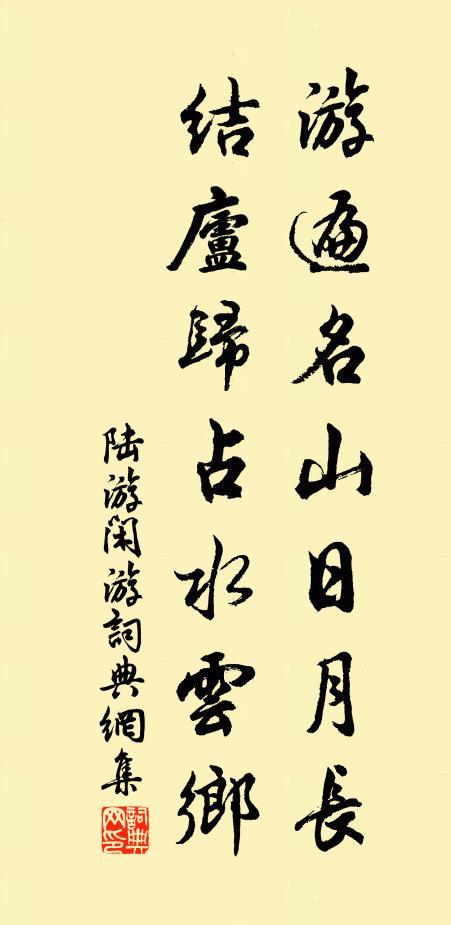 游遍名山日月長
結廬歸占水雲鄉
陆游閑游詞典網集
詞典网印